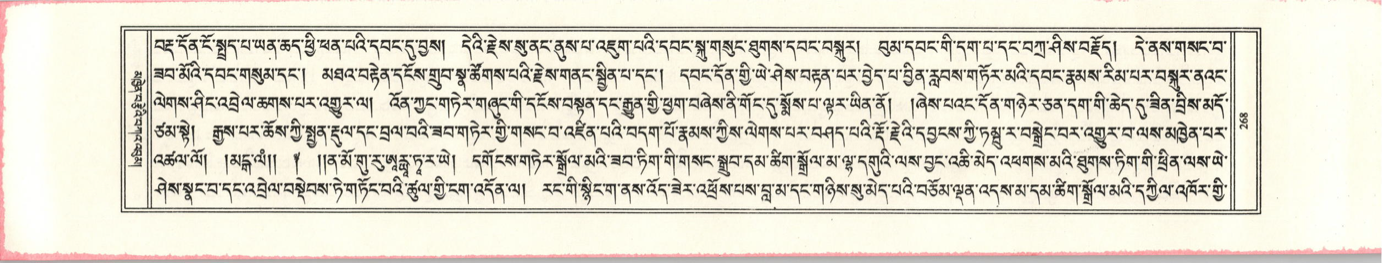 བརྡ་དོན་ངོ་སྤྲད་པ་ཡན་ཆད་ཕྱི་ཕན་པའི་དབང་དུ་བྱས། དེའི་རྗེས་སུ་ནང་ནུས་པ་འཇུག་པའི་དབང་སྐུ་གསུང་ཐུགས་དབང་བསྐུར། བུམ་དབང་གི་དག་པ་དང་བཀྲ་ཤིས་བརྗོད། དེ་ནས་གསང་བ་
ཟབ་མོའི་དབང་གསུམ་དང་། མཐའ་བརྟེན་དངོས་གྲུབ་སྣ་ཚོགས་པའི་རྗེས་གནང་སྦྱིན་པ་དང་། དབང་དོན་གྱི་ཡེ་ཤེས་བརྟན་པར་བྱེད་པ་བྱིན་རླབས་གཏོར་མའི་དབང་རྣམས་རིམ་པར་བསྐུར་ནའང་
ལེགས་ཤིང་འབྲེལ་ཆགས་པར་འགྱུར་ལ། འོན་ཀྱང་གཏེར་གཞུང་གི་དངོས་བསྟན་དང་རྒྱུན་གྱི་ཕྱག་བཞེས་ནི་གོང་དུ་སྨོས་པ་ལྟར་ཡིན་ནོ། །ཞེས་པའང་དོན་གཉེར་ཅན་དག་གི་ཆེད་དུ་ཟིན་བྲིས་མདོ་
ཙམ་སྟེ། རྒྱས་པར་ཆོས་ཀྱི་སྤྱན་རྡུལ་དང་བྲལ་བའི་ཟབ་གཏེར་གྱི་གསང་བ་འཛིན་པའི་བདག་པོ་རྣམས་ཀྱིས་ལེགས་པར་བཤད་པའི་རྡོ་རྗེའི་དབྱངས་ཀྱི་ཏམྦུ་ར་བསྒྲེང་བར་འགྱུར་བ་ལས་མཁྱེན་པར་
འཚལ་ལོ། །མངྒ་ལཾ།། ། །།ན་མོ་གུ་རུ་ཨཱརྱ་ཏཱ་ར་ཡེ། དགོངས་གཏེར་སྒྲོལ་མའི་ཟབ་ཏིག་གི་གསང་སྒྲུབ་དམ་ཚིག་སྒྲོལ་མ་ལྷ་དགུའི་ལས་བྱང་འཆི་མེད་འཕགས་མའི་ཐུགས་ཏིག་གི་ཕྲིན་ལས་ཡེ་
ཤེས་སྣང་བ་དང་འབྲེལ་བསྡེབས་ཏེ་གཏོང་བའི་ཚུལ་གྱི་ངག་འདོན་ལ། རང་གི་སྙིང་ག་ནས་འོད་ཟེར་འཕྲོས་པས་བླ་མ་དང་གཉིས་སུ་མེད་པའི་བཅོམ་ལྡན་འདས་མ་དམ་ཚིག་སྒྲོལ་མའི་དཀྱིལ་འཁོར་གྱི་
268